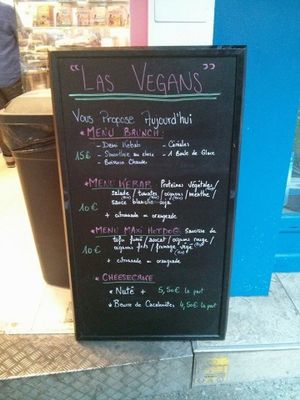 "LAS VEGANS"
Vous Propose Aujourd'hui
• MENU BRUNCH:
- Demi Kebab - Céréales
15€ - Smoothie au choix - 1 Boule de Glace
- Boisson Chaude
• MENU KEBAB Protéines végétales/
salade/tomates/oignons/menthe/
sauce blanche soja
10€
+ citronnade ou orangeade
• MENU MAXI HOTDOG Saucisse de
tofu fumé/avocat/oignons rouge/
10€ oignons frits/fromage végé
+ citronnade ou orangeade
• CHEESECAKE
• Nuté + 5,50€ la part
• Beurre de Cacahuètes 4,50€ la part